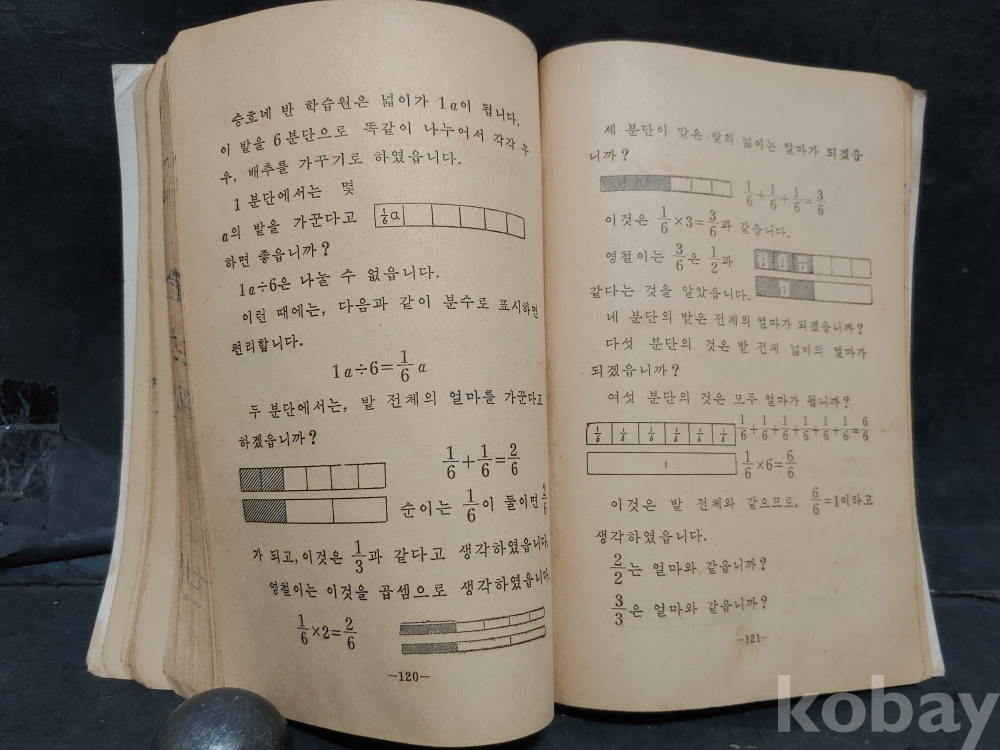 승호네 반 학습원은 넓이가 1a이 됩니다.
이 밭을 6분단으로 똑같이 나누어서 각각 무
우, 배추를 가꾸기로 하였읍니다.
1 분단에서는 몇
a의 밭을 가꾼다고
하면 좋읍니까?
1/6 a
1a÷6은 나눌 수 없읍니다.
이런 때에는, 다음과 같이 분수로 표시하면
편리합니다.
1a÷6=1/6 a
두 분단에서는, 밭 전체의 얼마를 가꾼다고
하겠읍니까?
1/6+1/6=2/6
순이는 1/6이 둘이면 2/6
가 되고, 이것은 1/3과 같다고 생각하였읍니다.
영철이는 이것을 곱셈으로 생각하였읍니다.
1/6×2=2/6
—120—
세 분단이 맡은 밭의 넓이는 얼마가 되겠읍
니까?
1/6+1/6+1/6=3/6
이것은 1/6×3=3/6과 같읍니다.
영철이는 3/6은 1/2과
같다는 것을 알았읍니다.
네 분단의 밭은 전체의 얼마가 되겠읍니까?
다섯 분단의 것은 밭 전체 넓이의 얼마가
되겠읍니까?
여섯 분단의 것은 모두 얼마가 됩니까?
1/6 1/6 1/6 1/6 1/6 1/6
1/6+1/6+1/6+1/6+1/6+1/6=6/6
1
1/6×6=6/6
이것은 밭 전체와 같으므로, 6/6=1이라고
생각하였읍니다.
2/2는 얼마와 같읍니까?
3/3은 얼마와 같읍니까?
—121—
kobay